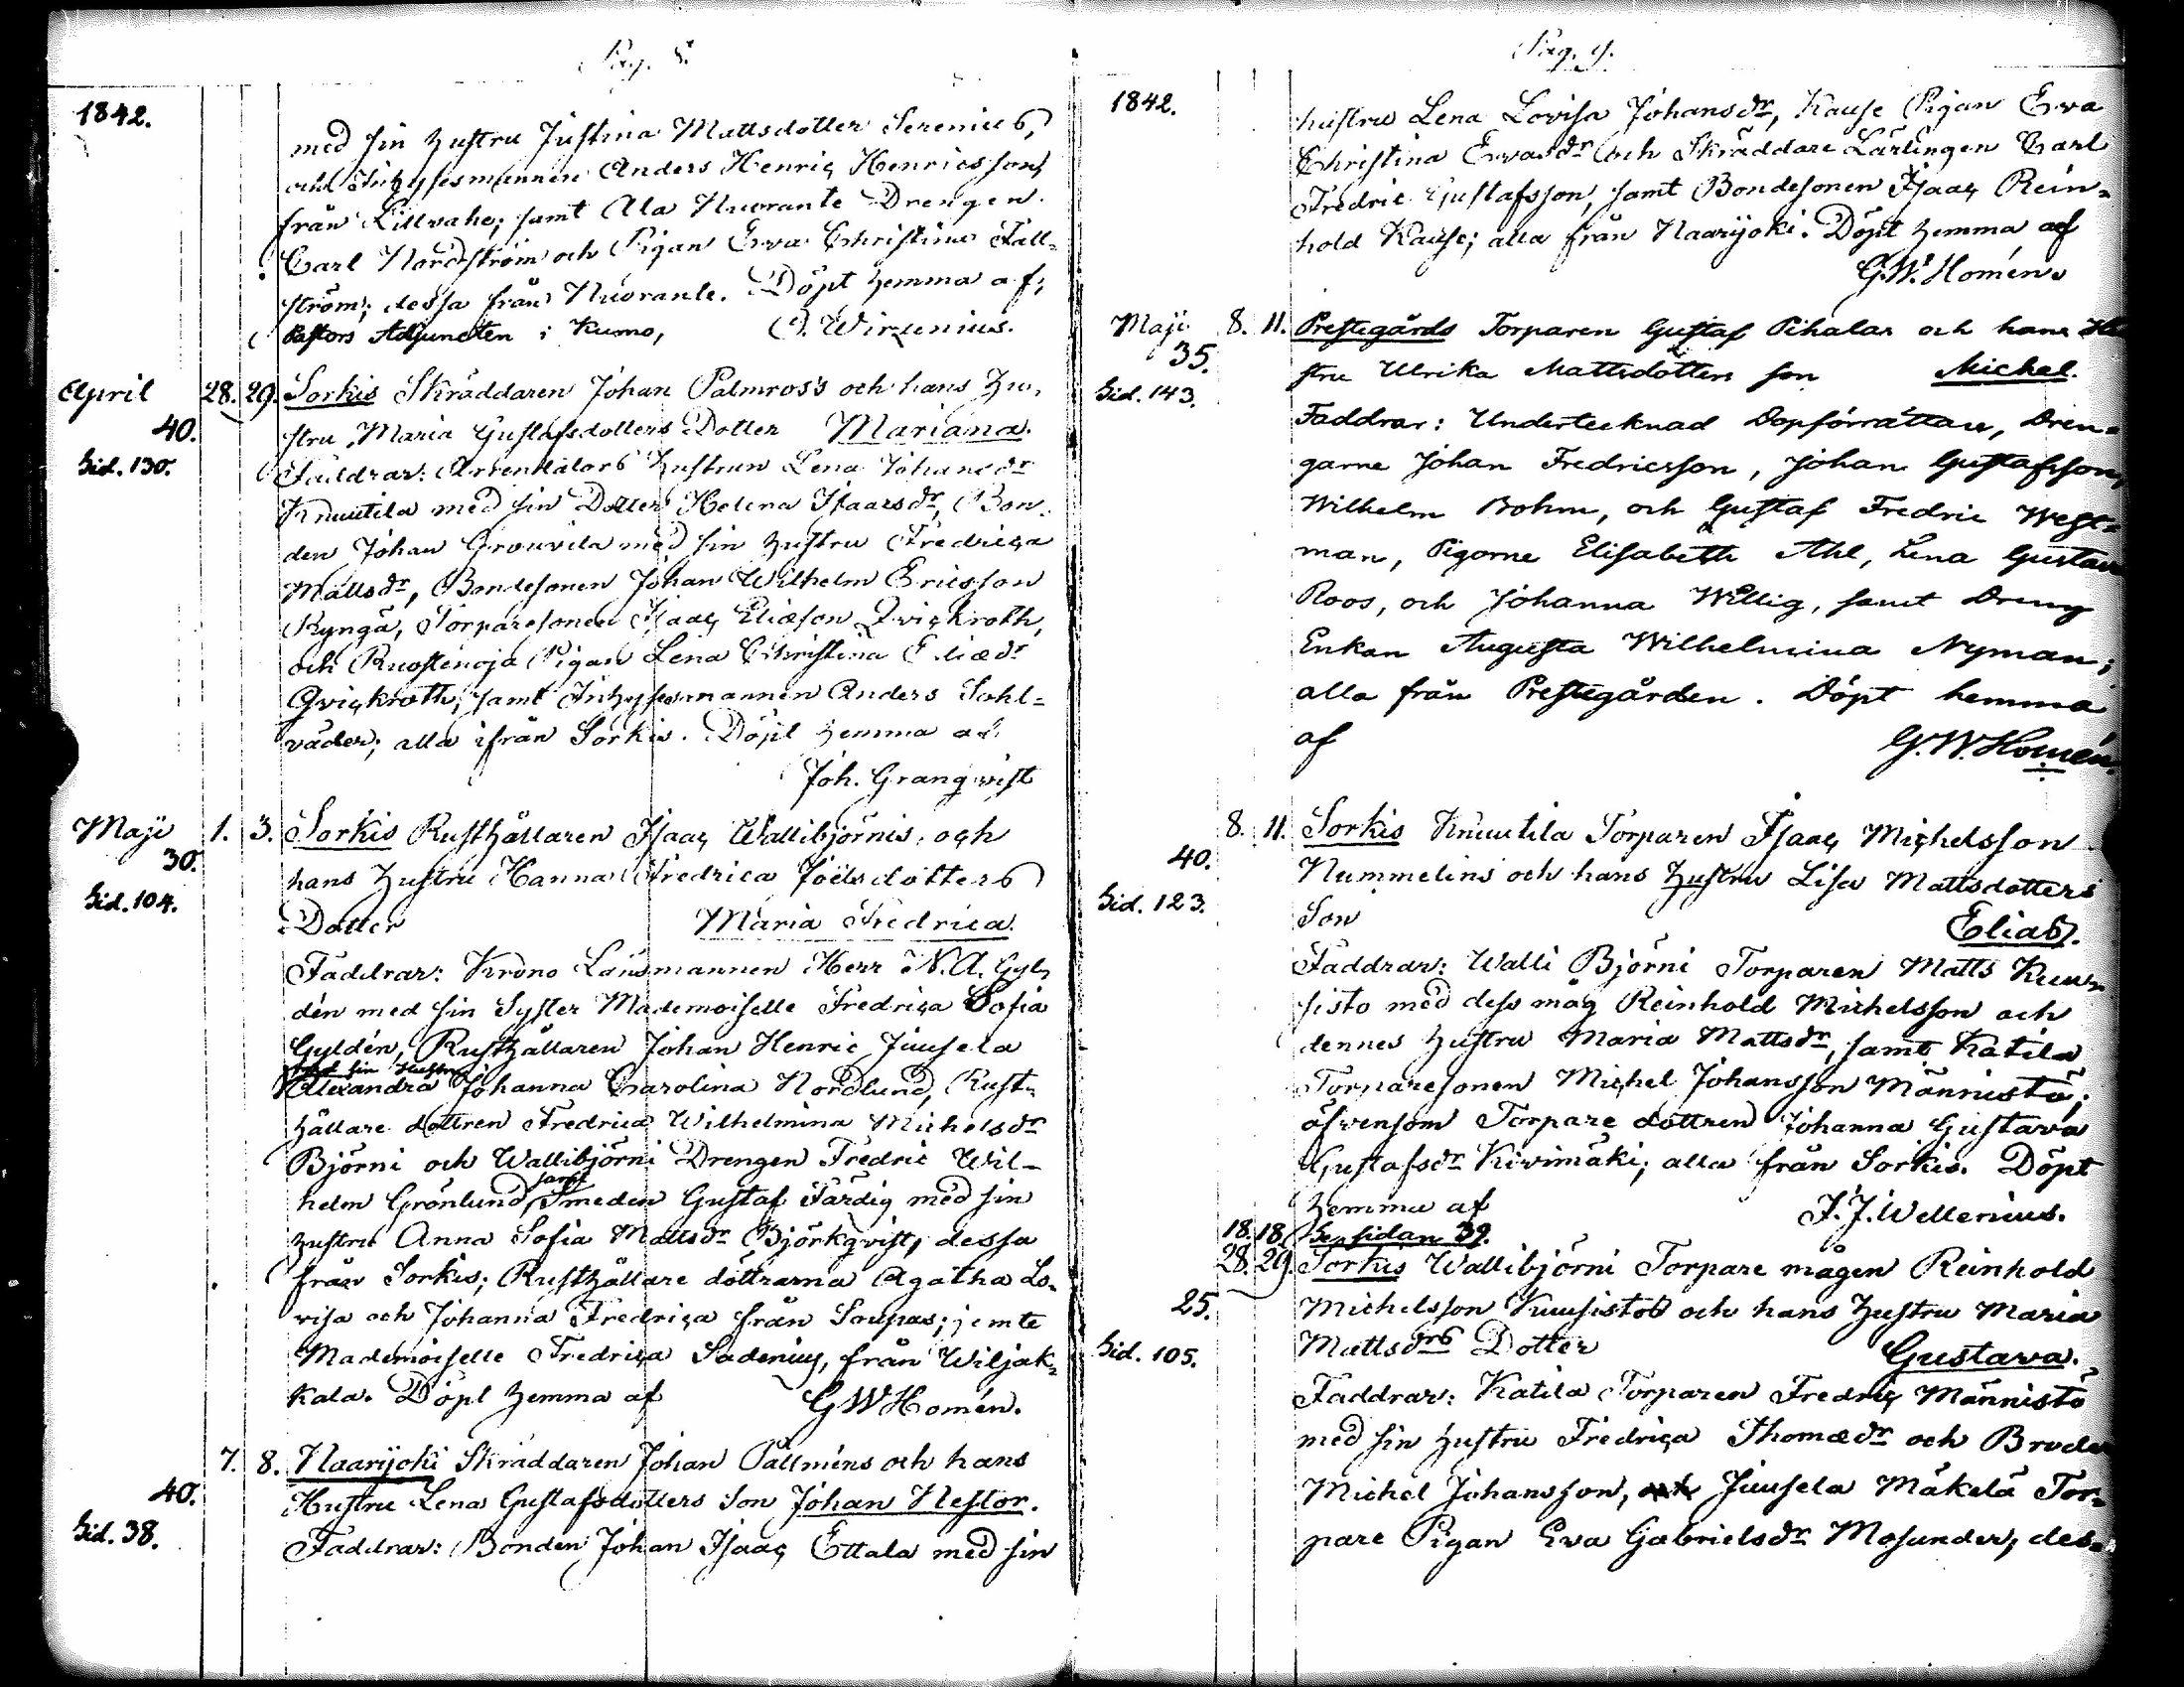 Pag. 8.
1842.
med sin Hustru Justina Mattsdotter Serenius,
och Inhysesmannen Anders Henric Henricsson,
från Lillvahe; samt Ala Nuorante Drengen
Carl Nordström och Pigan Eva Christina Fall=
ström; dessa från Nuorante. Döpt hemma af;
Pastors Adjuncten i Kumo, O. Wirzenius.
April 28. 29. Sorkis Skräddaren Johan Palmross's och hans Hu=
40. stru Maria Gustafsdotters Dotter Mariana.
Sid. 130. Faddrar: Arrendators Hustrun Lena Johansdr
Knuutila med sin Dotter Helena Isaacsdr, Bon=
den Johan Grouvila med sin Hustru Fredrica
Mattsdr, Bondesonen Johan Wilhelm Ericsson
Kynga, Torparesonen Isaac Eliasson Qvickroth,
och Ruostenoja Pigan Lena Christina Eliædr
Qvickroth; samt Inhysesmannen Anders Sahl=
väder; alla ifrån Sorkis. Döpt hemma af
Joh. Granqvist
Maji 1. 3. Sorkis Rusthållaren Isaac Wallibjörnis och
30. hans Hustru Hanna Fredrica Joëlsdotters
Sid. 104. Dotter Maria Fredrica.
Faddrar: Krono Länsmannen Herr N. A. Gyl=
dén med sin Syster Mademoiselle Fredrica Sofia
Gyldén, Rusthållaren Johan Henric Juusela
med sin Hustru
Alexandra Johanna Carolina Nordlund, Rust=
hållare dottren Fredrica Wilhelmina Michelsdr
Björni och Wallibjörni Drengen Fredric Wil=
samt
helm Grönlund, Smeden Gustaf Färdig med sin
Hustru Anna Sofia Mattsdr Björkqvist, dessa
från Sorkis; Rusthållare döttrarna Agatha Lo=
visa och Johanna Fredrica från Soupas; jemte
Mademoiselle Fredrica Sadenius, från Wiljak=
kala. Döpt hemma af G W Homén.
7. 8. Naarijoki Skräddaren Johan Pallméns och hans
40. Hustru Lena Gustafsdotters Son Johan Nestor.
Sid. 38. Faddrar: Bonden Johan Isaac Ettala med sin
Pag. 9.
1842.
hustru Lena Lovisa Johansdr, Kause Pigan Eva
Christina Evasdr och Skräddare Lärlingen Carl
Fredric Gustafsson, samt Bondesonen Isaac Rein=
hold Kause; alla från Naarijoki. Döpt hemma af
G. W. Homén.
Maji 8. 11. Prestegårds Torparen Gustaf Pihalas och hans Hu
35. stru Ulrika Mattsdotters son Michel.
Sid. 143.
Faddrar: Undertecknad Dopförrättare, Dren=
garne Johan Fredricsson, Johan Gustafsson,
Wilhelm Bohm, och Gustaf Fredric West=
man, Pigorne Elisabeth Ahl, Lena Gustava
Roos, och Johanna Willig, samt Dreng
Enkan Augusta Wilhelmina Nyman;
alla från Prestegården. Döpt hemma
af G. W. Homén.
8. 11. Sorkis Knuutila Torparen Isaac Michelsson
40. Nummelins och hans Hustru Lisa Mattsdotters
Sid. 123. Son Elias.
Faddrar: Walli Björni Torparen Matts Kuu=
sisto med dess måg Reinhold Michelsson och
dennes Hustru Maria Mattsdr, samt Katila
Torparesonen Michel Johansson Männistö;
äfvensom Torpare dottren Johanna Gustava
Gustafsdr Kivimäki; alla från Sorkis. Döpt
hemma af F. J. Wellenius.
18. 18. Se sidan 39.
28. 29. Sorkis Wallibjörni Torpare mågen Reinhold
25. Michelsson Kuusistos och hans Hustru Maria
Sid. 105. Mattsdrs Dotter Gustava.
Faddrar: Katila Torparen Fredric Männistö
med sin Hustru Fredrica Thomædr och Broder
Michel Johansson, Juusela Mäkelä Tor=
pare Pigan Eva Gabrielsdr Mosunder, des=